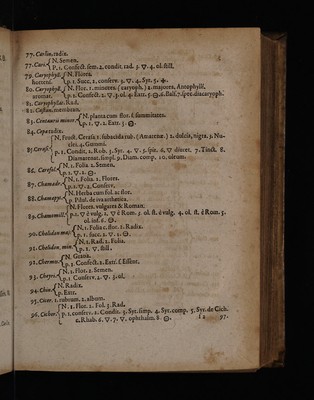 77. Carlin. radix.
77. Carvi {N. Semen.
P. 1. Confect. sem. 2. condit. rad. 3. 🜄. 4. ol. still.
79. Caryophyll. {N. Flores.
hortens. {p. 1. Succ. 2. conserv. 3. 🜄. 4. Syr. 5.
80. Caryophyll. {N. Flor. 1. minores. (caryoph.) 2. majores, Antophylli.
aromat. {p. 1. Confect. 2. 🜄. 3. ol. 4. Extr. 5. 6. Bals. 7. spec. diacaryoph.
81. Caryophyllat. Rad.
82. Castan.
83. Centaurii minor. {N. planta cum flor. s. summitates.
p. 1. 🜄. 2. Extr. 3.
84. Cepæ radix.
85. Cerasi {N. Fruct. Cerasi: 1. subacida rub. (Amarenæ.) 2. dulcia, nigra. 3. Nuclei. 4. Gummi.
p. 1. Condit. 2. Rob. 3. Syr. 4. 🜄. 5. spir. 6. 🜄 diuret. 7. Tinct. 8.
Diamarenat. simpl. 9. Diam. comp. 10. oleum.
86. Cerefol. {N. 1. Folia. 2. Semen.
p. 1. 🜄. 2.
87. Chamædr. {N. 1. Folia. 2. Flores.
p. 1. 🜄. 2. Conserv.
88. Chamæpyt. {N. Herba cum sol. ac flor.
p. Pilul. de iva arthetica.
89. Chamomill. {N. Flores. vulgares & Roman.
p. 1. 🜄 è vulg. 2. 🜄 è Rom. 3. ol. st. è vulg. 4. ol. st. è Rom. 5.
ol. inf. 6.
90. Chelidon. maj. {N. 1. Folia c. flor. 2. Radix.
p. 1. succ. 2. 🜄. 3.
91. Chelidon. min. {N. 1. Rad. 2. Folia.
p. 1. 🜄. still.
92. {N. Grana.
p. 1. Confect. 2. Extr. s. Essent.
93. {N. 1. Flor. 2. Semen.
p. 1. Conserv. 2. 🜄. 3. ol.
94. Chin. {N. Radix.
p. Extr.
95. Cicer. 1. rubrum. 2. album.
96. Cichor. {N. 1. Flor. 2. Fol. 3. Rad.
p. 1. conserv. 2. Condit. 3. Syr. simp. 4. Syr. comp. 5. Syr. de Cich.
c. Rhab. 6. 🜄. 7. 🜄. ophthalm. 8.
97.